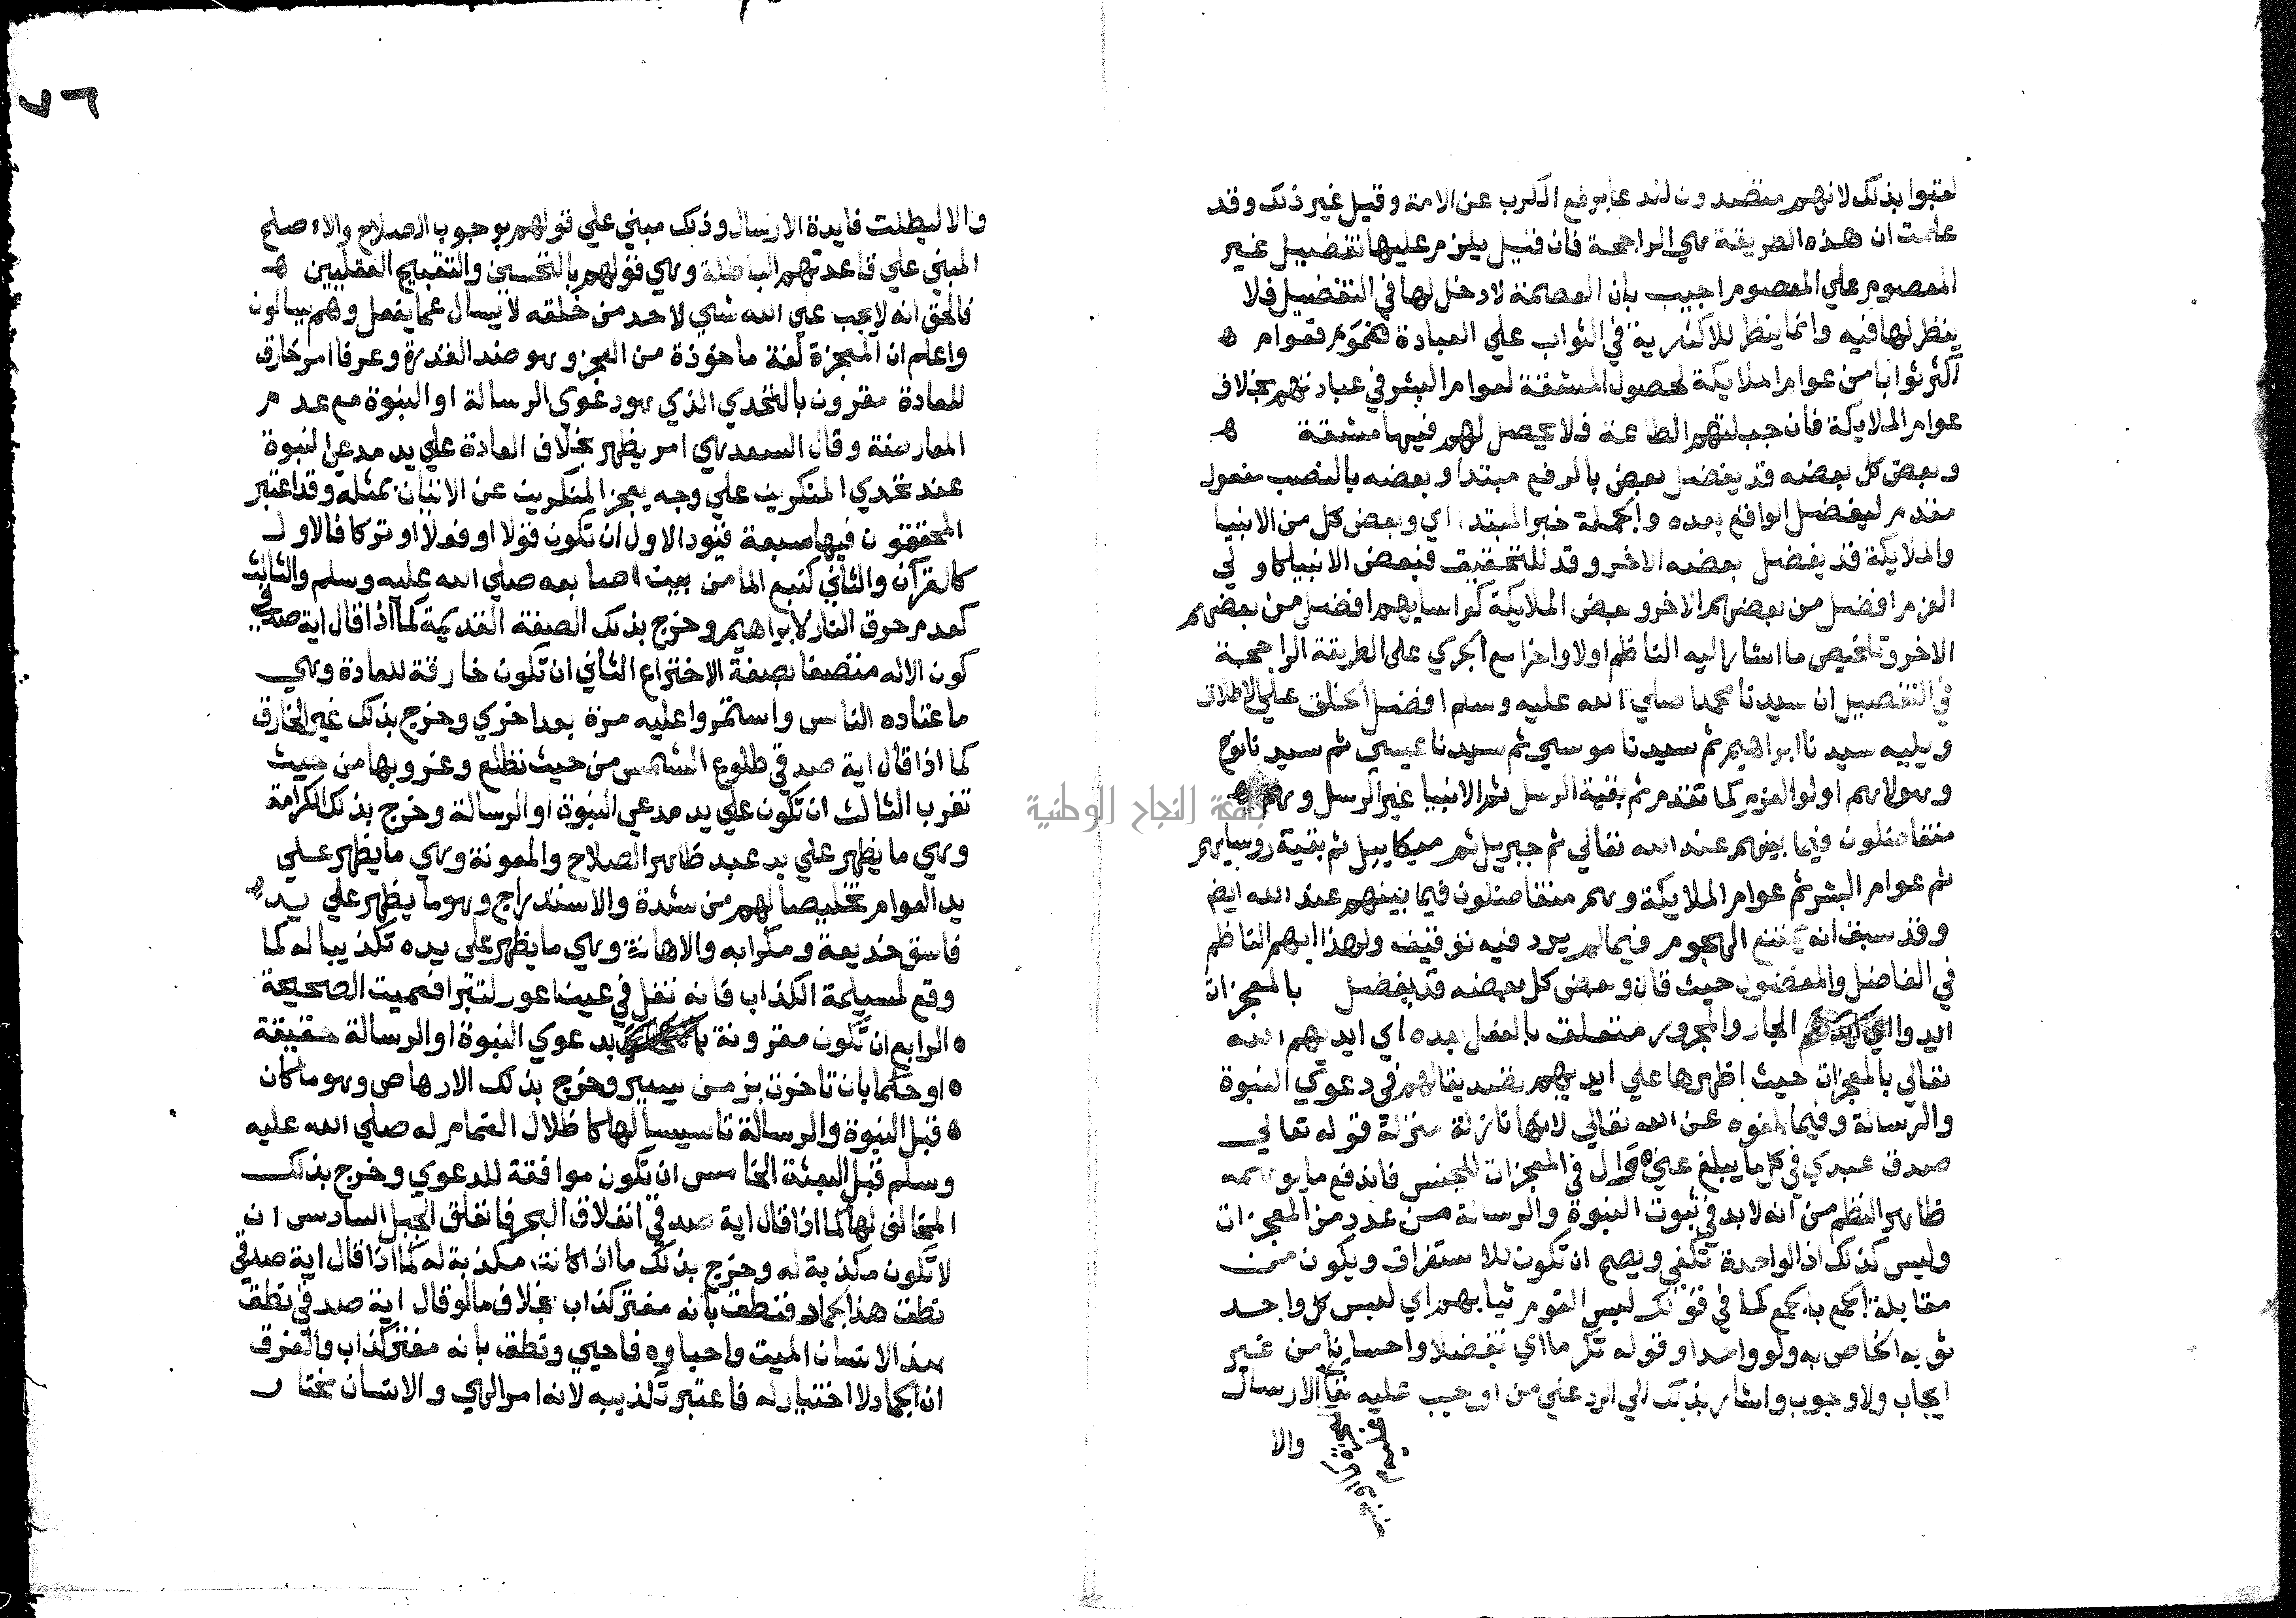 لقبوا بذلك لانهم متصدون للدعا برفع الكرب عن الامة وقيل غير ذلك وقد
علمت ان هذه الطريقة هي الراجحة فان قيل يلزم عليها تفضيل غير
المعصوم علي المعصوم اجيب بان العصمة لا دخل لها في التفضيل فلا
ينظر لها فيه وانما ينظر للاكثرية في الثواب علي العبادة فعوام
اكثر ثوابا من عوام الملايكة لحصول المشقة لعوام البشر في عبادتهم بخلاف
عوام الملايكة فان جبلتهم الطاعة فلا يحصل لهم فيها مشقة ه
وبعض كل بعضه قد يفضل بعض بالرفع مبتدا وبعضه بالنصب مفعول
مقدم ليفضل الواقع بعده والجملة خبر المبتدا اي وبعض كل من الانبيا
والملايكة قد يفضل بعضه الاخر وقد للتحقيق فبعض الانبيا كاولي
العزم افضل من بعضهم الاخر وبعض الملايكة كروسايهم افضل من بعضهم
الاخر وتلخيص ما اشار اليه الناظم اولا واخرا مع الجري علي الطريقة الراجحة
في التفصيل ان سيدنا محمدا صلي الله عليه وسلم افضل الخلق علي الاطلاق
ويليه سيدنا ابراهيم ثم سيدنا موسي ثم سيدنا عيسي ثم سيدنا نوح
وهولاء هم اولوا العزم كما تقدم ثم بقية الرسل ثم الانبيا غير الرسل وهم
متفاضلون فيما بينهم عند الله تعالي ثم جبريل ثم ميكاييل ثم بقية روسايهم
ثم عوام البشر ثم عوام الملايكة وهم متفاضلون فيما بينهم عند الله ايض
وقد سبق انه يمتنع الهجوم فيما لم يرد فيه توقيف ولهذا ابهم الناظم
في الفاضل والمفضول حيث قال وبعض كل بعضه قد يفضل بالمعجزات
ايدوا الجار والمجرور متعلق بالفعل بعده اي ايدهم الله
تعالي بالمعجزات حيث اظهرها علي ايديهم تصديقا لهم في دعوي النبوة
والرسالة وفيما بلغوه عن الله تعالي لانها نازلة منزلة قوله تعالي
صدق عبدي في كل ما يبلغ عني وال في المعجزات للجنس فاندفع ما يوهمه
ظاهر النظم من انه لا بد في ثبوت النبوة والرسالة من عدد من المعجزات
وليس كذلك اذ الواحدة تكفي ويصح ان تكون للاستغراق ويكون من
مقابلة الجمع بالجمع كما في قولك لبس القوم ثيابهم اي لبس كل واحد
ثوبه الخاص به ولو واحدا وقوله تكرما اي تفضلا واحسانا من غير
ايجاب ولا وجوب واشار بذلك الي الرد علي من اوجب عليه تعالي الارسال
والا
٧٦
والا لبطلت فايدة الارسال وذلك مبني علي قولهم بوجوب الصلاح والاصلح
المبني علي قاعدتهم الباطلة وهي قولهم بالتحسين والتقبيح العقليين ه
فالحق انه لا يجب علي الله شي لاحد من خلقه لا يسال عما يفعل وهم يسالون
واعلم ان المعجزة لغة ماخوذة من العجز وهو ضد القدرة وعرفا امر خارق
للعادة مقرون بالتحدي الذي هو دعوي الرسالة او النبوة مع عدم
المعارضة وقال السعد هي امر يظهر بخلاف العادة علي يد مدعي النبوة
عند تحدي المنكرين علي وجه يعجز المنكرين عن الاتيان بمثله وقد اعتبر
المحققون فيها سبعة قيود الاول ان تكون قولا او فعلا او تركا فالاول
كالقران والثاني كنبع الما من بين اصابعه صلي الله عليه وسلم والثالث
كعدم حرق النار لابراهيم وخرج بذلك الصفة القديمة كما اذا قال اية صدقي
كون الاله متصفا بصفة الاختراع الثاني ان تكون خارقة للعادة وهي
ما عتاده الناس واستمروا عليه مرة بعد اخري وخرج بذلك غير الخارق
كما اذا قال اية صدقي طلوع الشمس من حيث تطلع وغروبها من حيث
تغرب الثالث ان تكون علي يد مدعي النبوة او الرسالة وخرج بذلك الكرامة
وهي ما يظهر علي يد عبد ظاهر الصلاح والمعونة وهي ما يظهر علي
يد العوام تخليصا لهم من شدة والاستدراج وهو ما يظهر علي يد
فاسق خديعة ومكرا به والاهانة وهي ما يظهر علي يده تكذيبا له كما
وقع لمسيلمة الكذاب فانه تفل في عين اعور لتبرا فعميت الصحيحة
الرابع ان تكون مقرونة بدعوي النبوة او الرسالة حقيقة
او حكما بان تاخرت بزمن يسير وخرج بذلك الارهاص وهو ما كان
قبل النبوة والرسالة تاسيسا لها كاظلال الغمام له صلي الله عليه
وسلم قبل البعثة الخامس ان تكون موافقة للدعوي وخرج بذلك
المخالق لها كما اذا قال اية صدقي انفلاق البحر فانفلق الجبل السادس ان
لا تكون مكذبة له وخرج بذلك ما اذا كانت مكذبة له كما اذا قال اية صدقي
نطق هذا الجماد فنطق بانه مفتر كذاب بخلاف ما لو قال اية صدقي نطق
هذا الانسان الميت واحياوه فاحيي ونطق بانه مفتر كذاب والفرق
ان الجماد لا اختيار له فاعتبر تكذيبه لانه امر الهي والانسان مختار
جامعة النجاح الوطنية